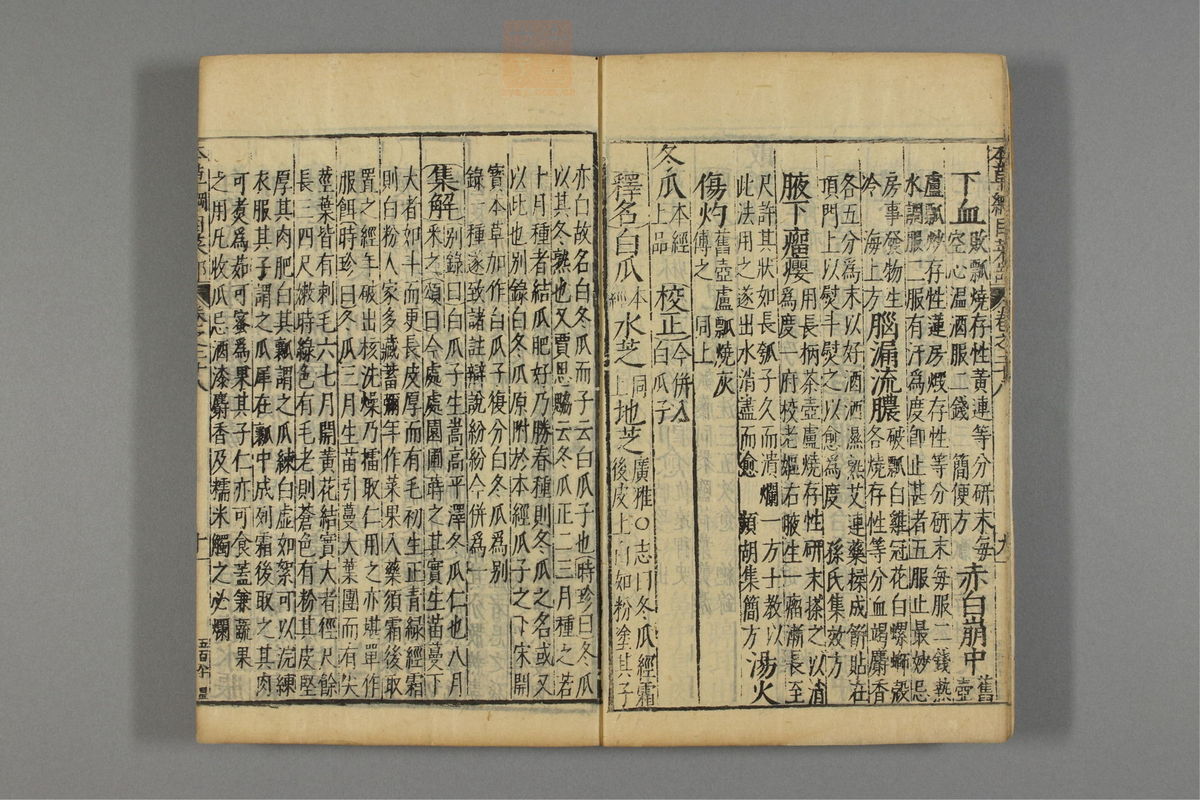 本草綱目菜部 卷之二十八 九
下血敗瓢燒存性黃連等分研末每空心溫酒服二錢 簡便方 赤白崩中舊壺
盧瓢炒存性蓮房煅存性等分研末每服二錢熱
水調服三服有汗爲度卽止甚者五服止最妙忌
房事發物生冷 海上方 腦漏流膿破瓢白雞冠花白螺螄殼
各燒存性等分血竭麝香
各五分爲末以好酒洒濕熟艾連藥揉成餅貼在
頂門上以熨斗熨之以愈爲度 孫氏集效方
腋下瘤癭用長柄茶壺盧燒存性研末搽之以消
爲度一府校老嫗右腋生一瘤漸長至
尺許其狀如長瓠子久而潰爛一方士教以
此法用之遂出水消盡而愈 瀕湖集簡方 湯火
傷灼舊壺盧瓢燒灰傅之 同上
冬瓜本經上品 校正今併入白瓜子
釋名白瓜本經 水芝同上 地芝廣雅○志曰冬瓜經霜後皮上白如粉塗其子
亦白故名白冬瓜而子云白瓜子也時珍曰冬瓜
以其冬熟也又賈思勰云冬瓜正二三月種之若
十月種者結瓜肥好乃勝春種則冬瓜之名或又
以此也別錄白冬瓜原附於本經瓜子之下宋開
寶本草加作白瓜子復分白冬瓜爲別
錄一種遂致諸註辯說紛紛今併爲一
集解別錄曰白瓜子生嵩高平澤冬瓜仁也八月
采之頌曰今處處園圃蒔之其實生苗蔓下
大者如斗而更長皮厚而有毛初生正青綠經霜
則白粉人家多藏蓄彌年作菜果入藥須霜後取
置之經年破出核洗燥乃擂取仁用之亦堪單作
服餌時珍曰冬瓜三月生苗引蔓大葉團而有尖
莖葉皆有刺毛六七月開黃花結實大者徑尺餘
長三四尺嫩時綠色有毛老則蒼色有粉其皮堅
厚其肉肥白其瓤謂之瓜練白虛如絮可以浣練
衣服其子謂之瓜犀在瓤中成列霜後取之其肉
可煮爲茹可蜜爲果其子仁亦可食蓋兼蔬果
之用凡收瓜忌酒漆麝香及糯米觸之必爛
本草綱目菜部 卷之二十八 十